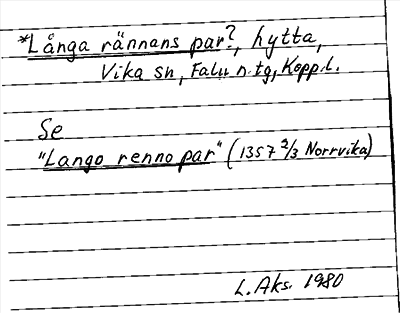 *Långa rännans par?, hytta,
Vika sn, Falu n.tg, Kopp.l.
Se
"Lango renno par" (1357 2/3 Norrvika)
L. Aks. 1980